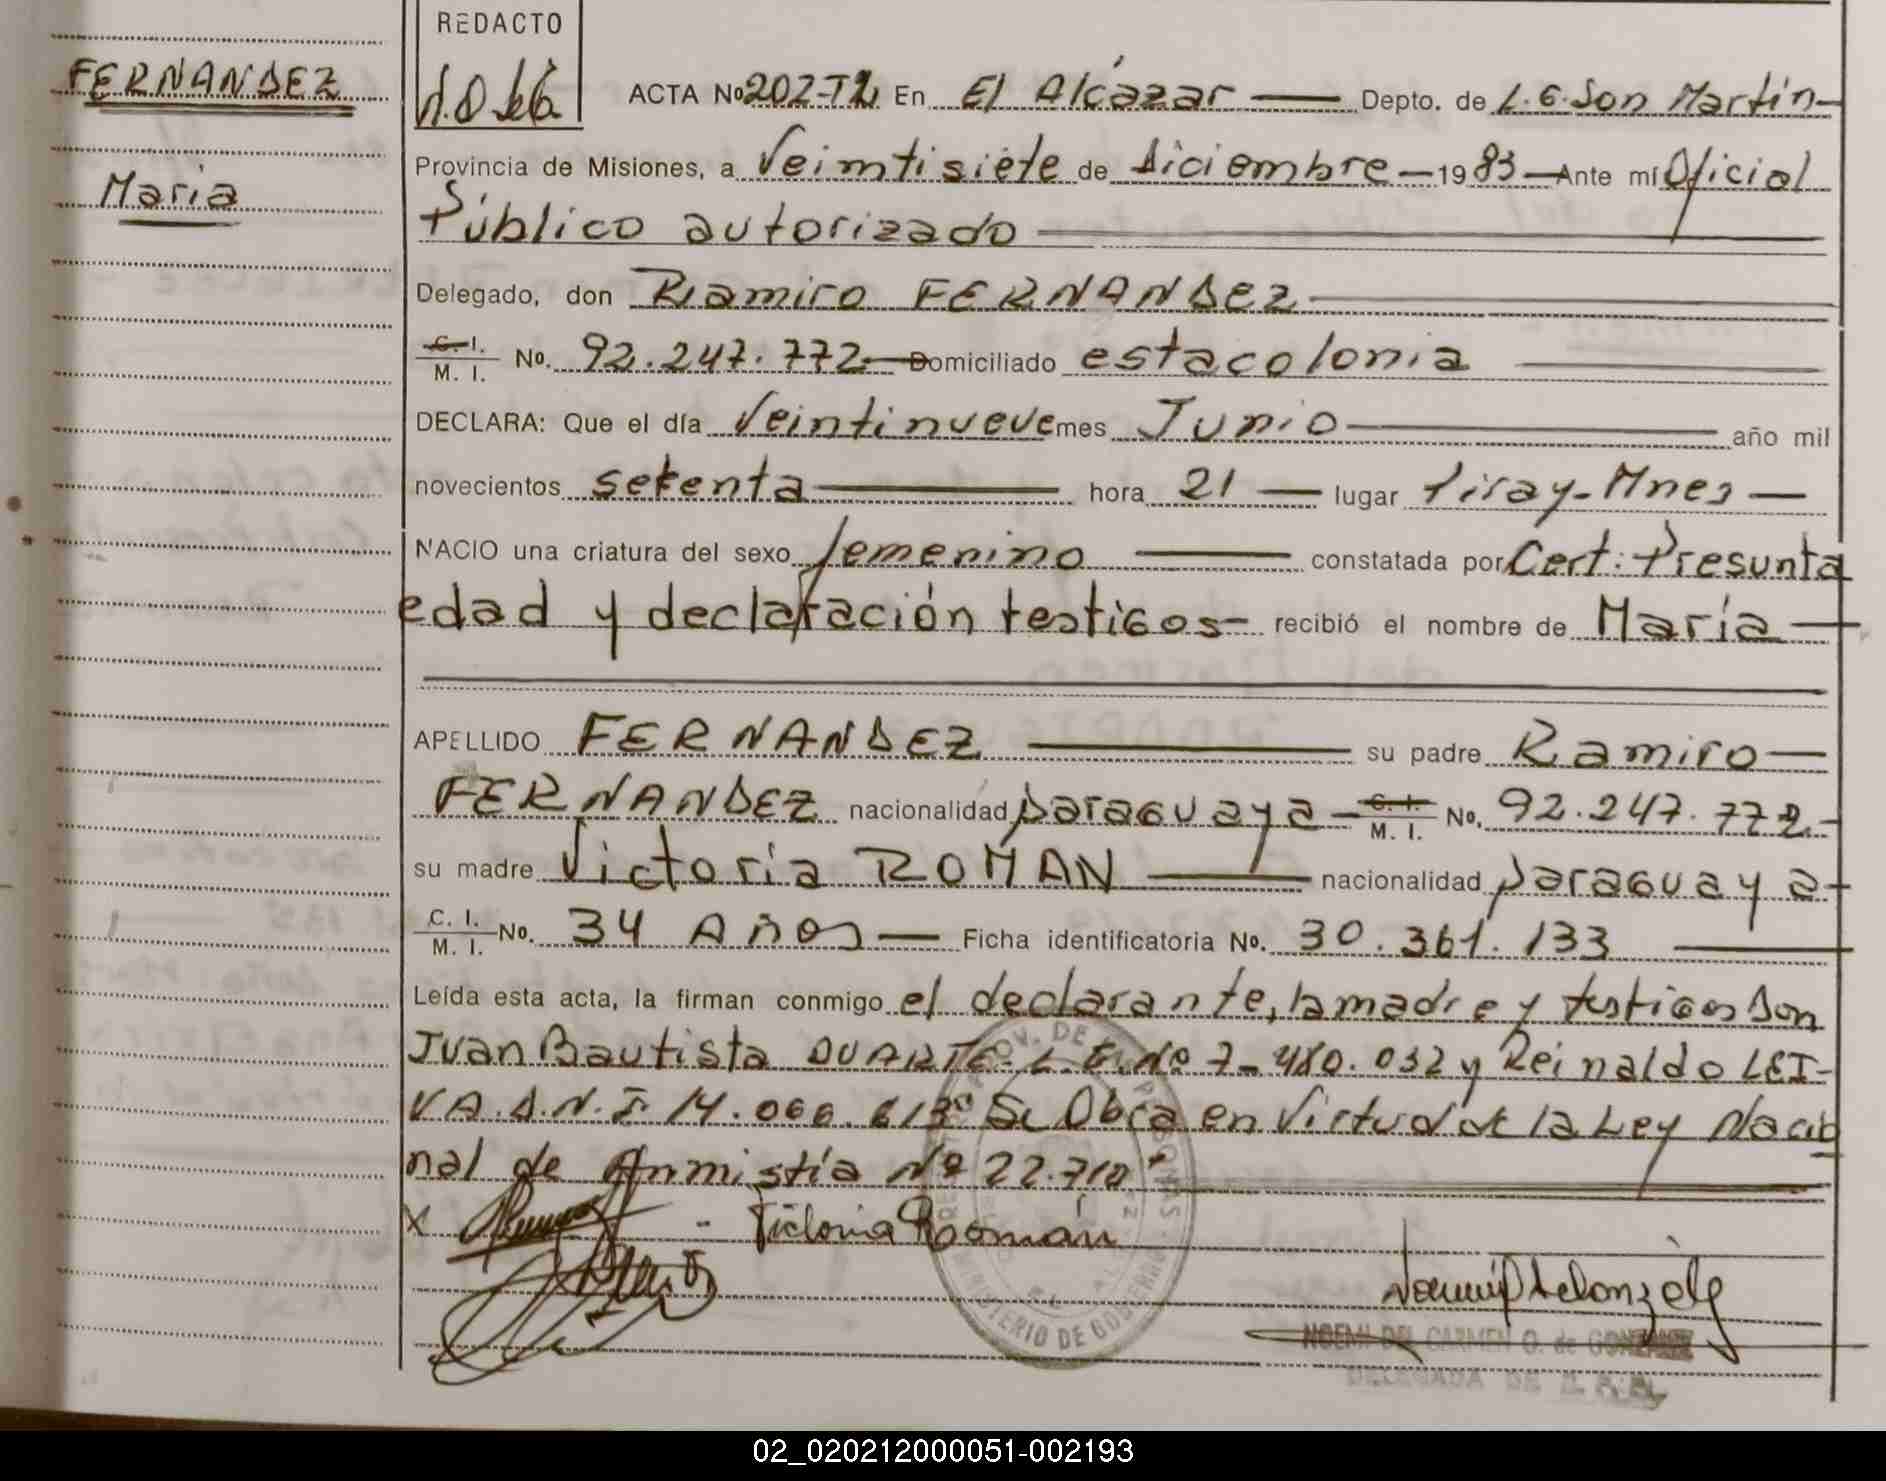 FERNANDEZ
Maria
REDACTO
ACTA No 202-T2 En El Alcázar — Depto. de L.G. San Martin-
Provincia de Misiones, a Veimtisiete de diciembre — 19 83 — Ante mí Oficial
Público autorizado
Delegado, don Ramiro FERNANDEZ
C. I. M. I. No. 92.247.772 — Domiciliado esta colonia
DECLARA: Que el día Veintinueve mes Junio — año mil
novecientos setenta — hora 21 — lugar Piray-Mnes —
NACIO una criatura del sexo femenino — constatada por Cert: Presunta
edad y declaración testigos- recibió el nombre de María —
APELLIDO FERNANDEZ — su padre Ramiro —
FERNANDEZ nacionalidad paraguaya — C. I. M. I. No. 92.247.772-
su madre Victoria ROMAN — nacionalidad paraguaya-
C. I. M. I. No. 34 Años — Ficha identificatoria No. 30.361.133 —
Leída esta acta, la firman conmigo el declarante, la madre y testigos Don
Juan Bautista DUARTE- L.E. No 7-480.032 y Reinaldo LEI-
VA. D.N.I 14.066.613 Se Obra en Virtud de la Ley Nacio
nal de Anmistía Nº 22.710
X - Victoria Román
PROV. DE
MINISTERIO DE GOBIERNO
NOEMI DEL CARMEN O. de GONZALEZ
DELEGADA DE
02_020212000051-002193